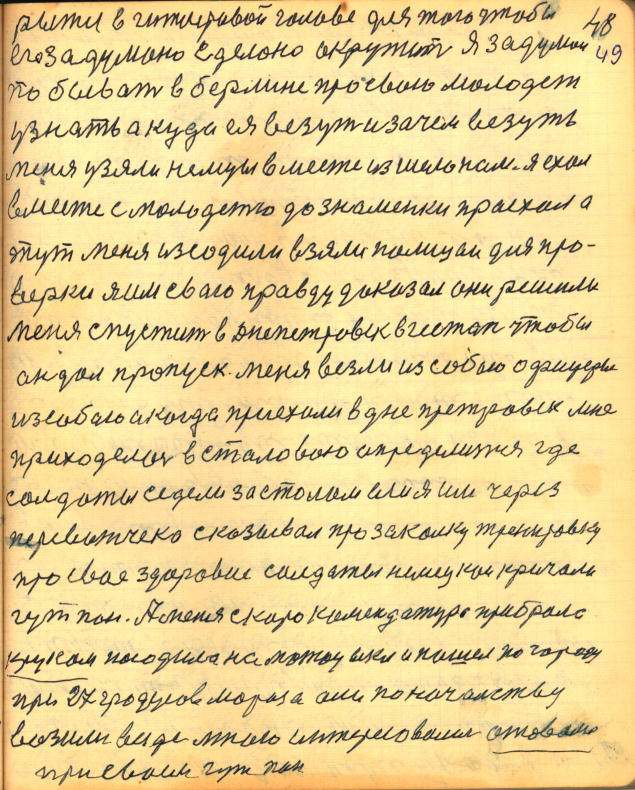 48
рыти в гитлеровой голове для того чтобы
49
его задумано сделоно окружит я задумол
побыват в берлине просвою молодеж
узнать а куда ея везут и зачем везуть
меня узяли немцы вместе из шельпам. я ехол
вместе с молодежю до знаменки проехол а
тут меня изсодили взяли полицаи для про-
верки я им сваю правду доказал они решили
меня спустит в днепетровск в гестап чтобы
ан дал пропуск. меня везли из собою офицеры
из собаю а когда приехоли в дне претровск мне
приходелос в сталовою определится где
солдоты седели за столом ели я им через
перевотчека сказывал про закалку тренировку
про свае здоровие солдаты немецкои кричали
гут пан. А меня скоро комендатура прибрала
кругом посодила на мотоцикл и пошел по городу
при 27 градусов мороза ани по началству
вазили везде много интересовались
при своем гут пан